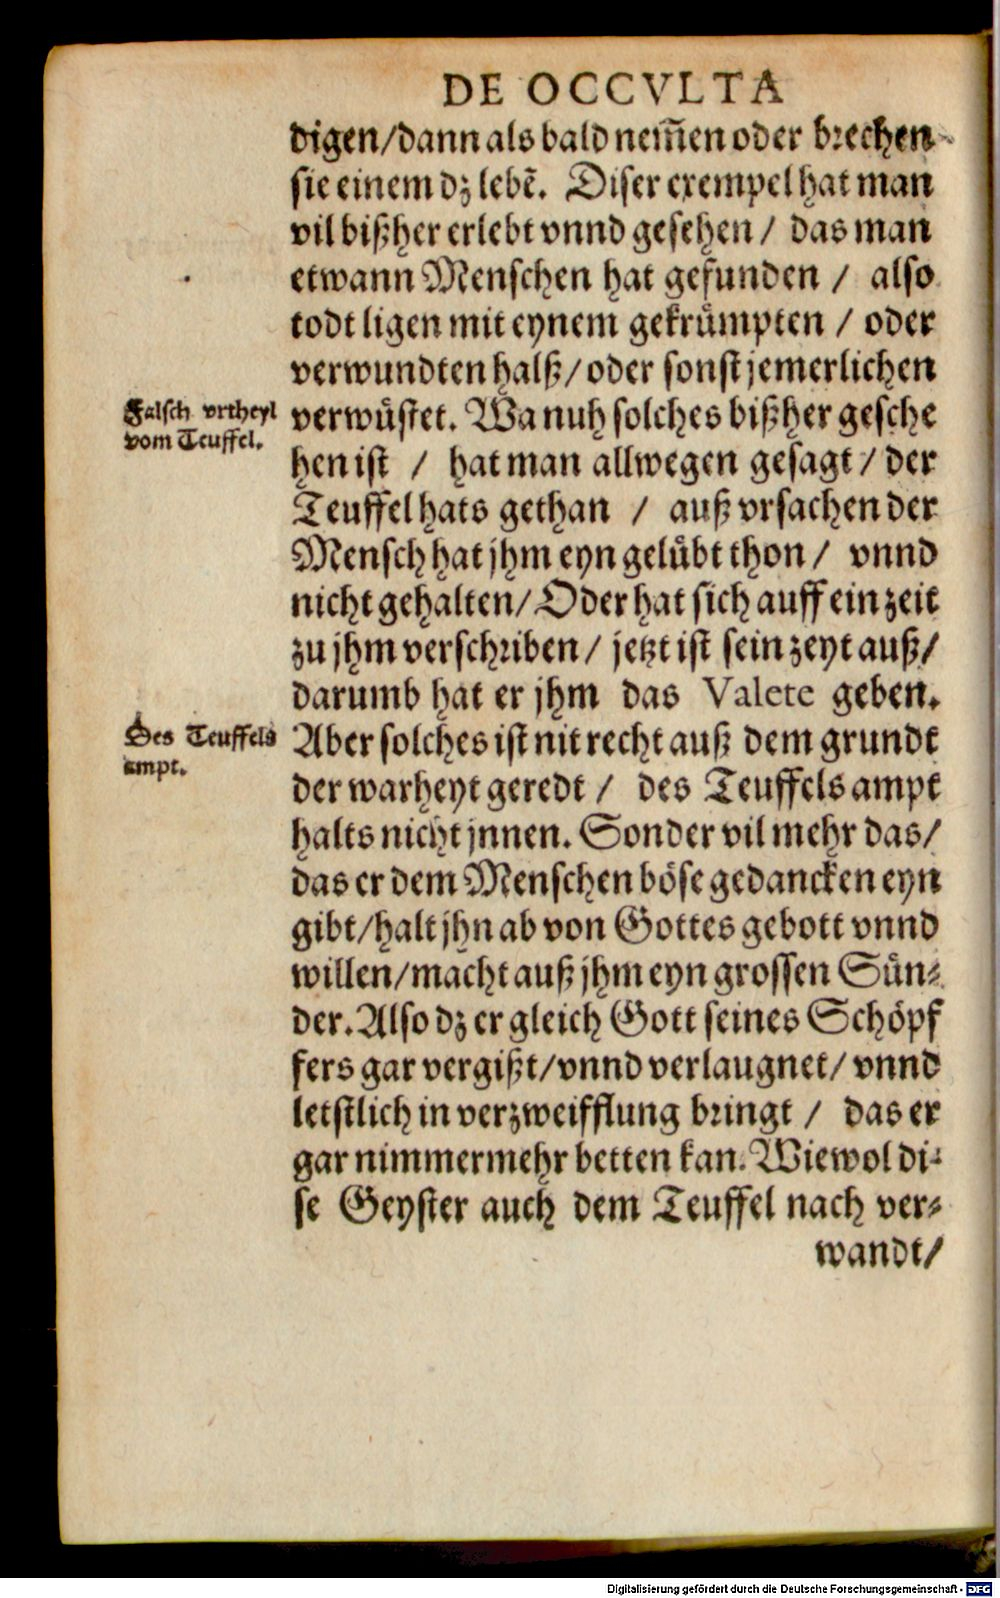 DE OCCVLTA
digen/dann als bald nem̃en oder brechen
sie einem dz lebẽ. Diser exempel hat man
vil bißher erlebt vnnd gesehen / das man
etwann Menschen hat gefunden / also
todt ligen mit eynem gekruͤmpten / oder
verwundten halß/oder sonst jemerlichen
Falsch vrtheyl
vom Teuffel.
verwuͤstet. Wa nuh solches bißher gesche
hen ist / hat man allwegen gesagt / der
Teuffel hats gethan / auß vrsachen der
Mensch hat jhm eyn geluͤbt thon / vnnd
nicht gehalten/Oder hat sich auff ein zeit
zu jhm verschriben / jetzt ist sein zeyt auß/
darumb hat er jhm das Valete geben.
Des Teuffels
ampt.
Aber solches ist nit recht auß dem grundt
der warheyt geredt / des Teuffels ampt
halts nicht jnnen. Sonder vil mehr das/
das er dem Menschen boͤse gedancken eyn
gibt/halt jhn ab von Gottes gebott vnnd
willen/macht auß jhm eyn grossen Suͤn⸗
der. Also dz er gleich Gott seines Schoͤpf
fers gar vergißt/vnnd verlaugnet/ vnnd
letstlich in verzweifflung bringt / das er
gar nimmermehr betten kan. Wiewol di⸗
se Geyster auch dem Teuffel nach ver⸗
wandt/
Digitalisierung gefördert durch die Deutsche Forschungsgemeinschaft - DFG